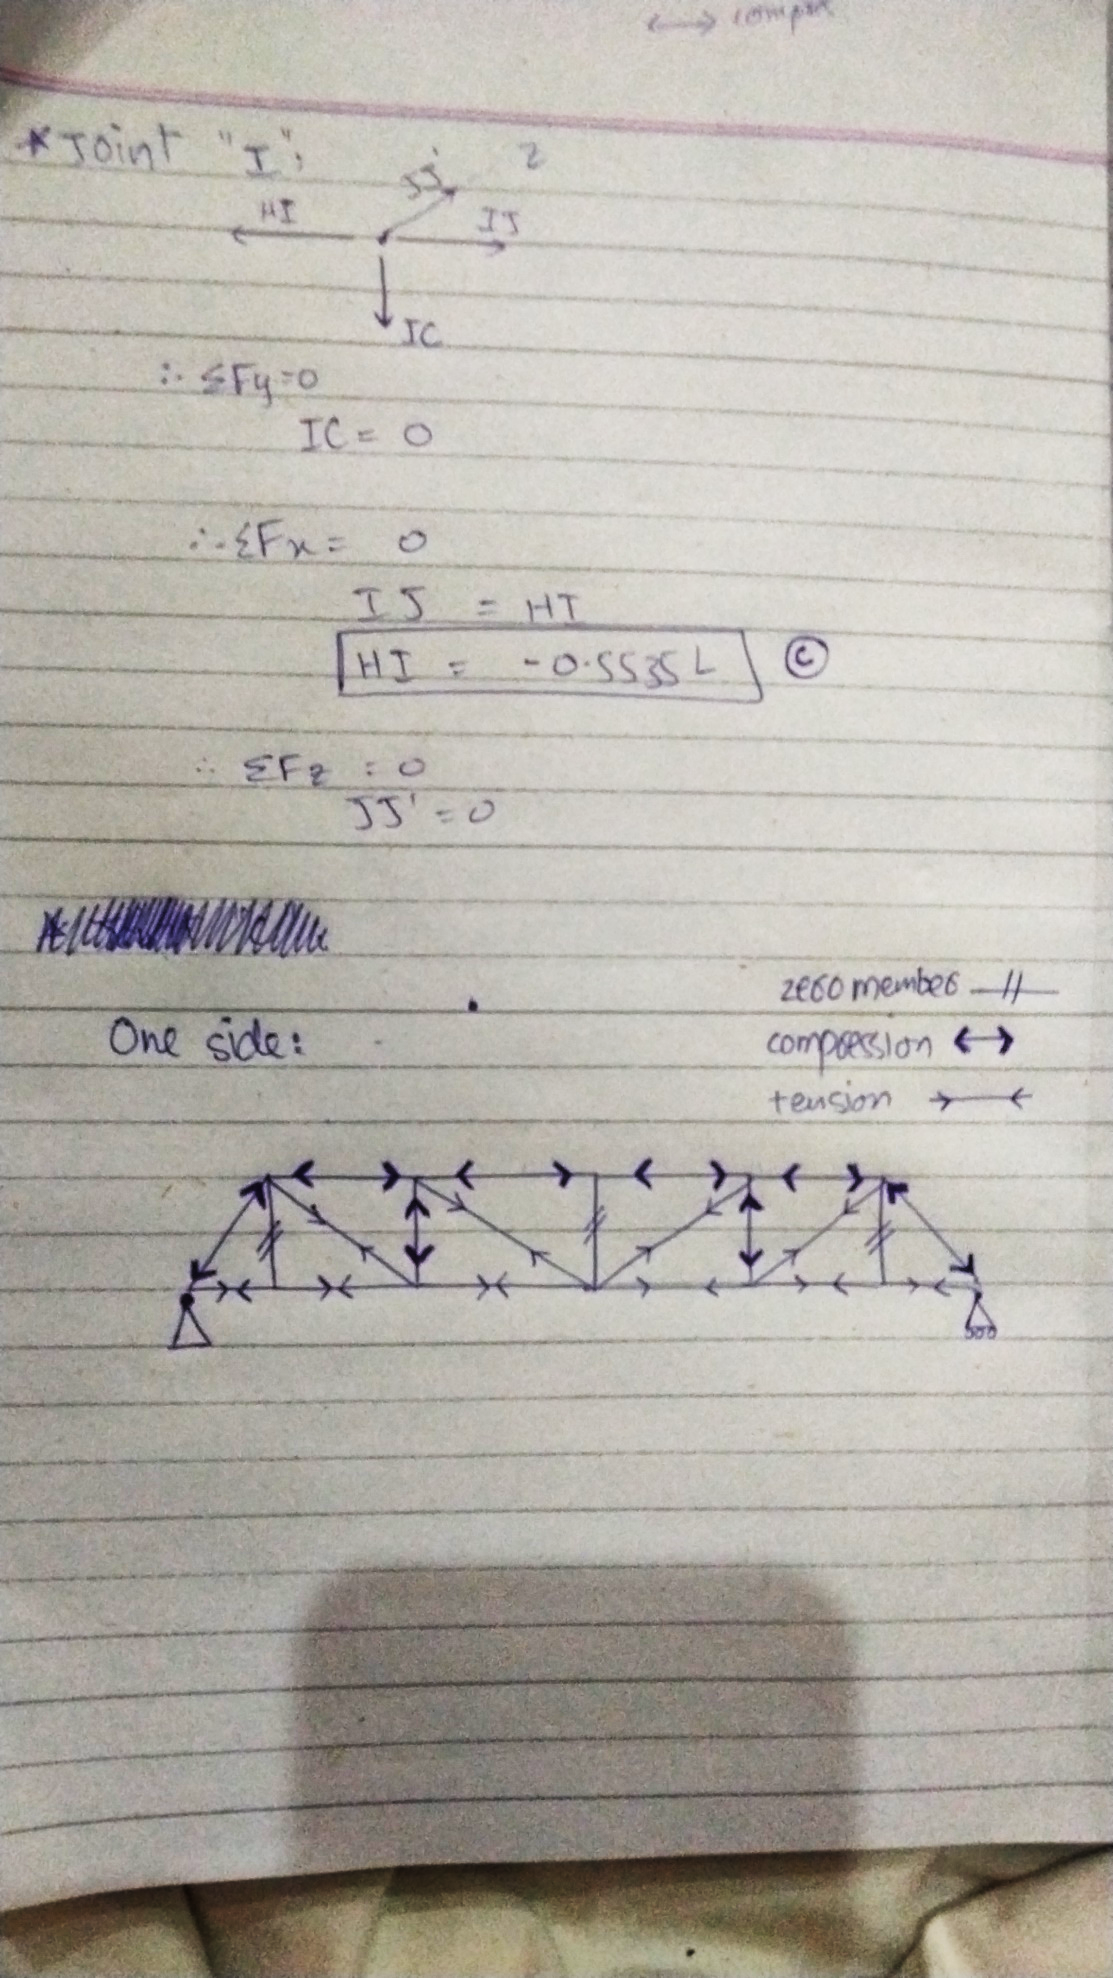 ←→ compre
* Joint "I":
JJ' z
HI IJ
IC
∴ ΣFy=0
IC = 0
∴ ΣFx = 0
IJ = HI
HI = -0.5535 L (C)
∴ ΣFz = 0
JJ' = 0
zero member -//-
One side:
compression ↔
tension →←